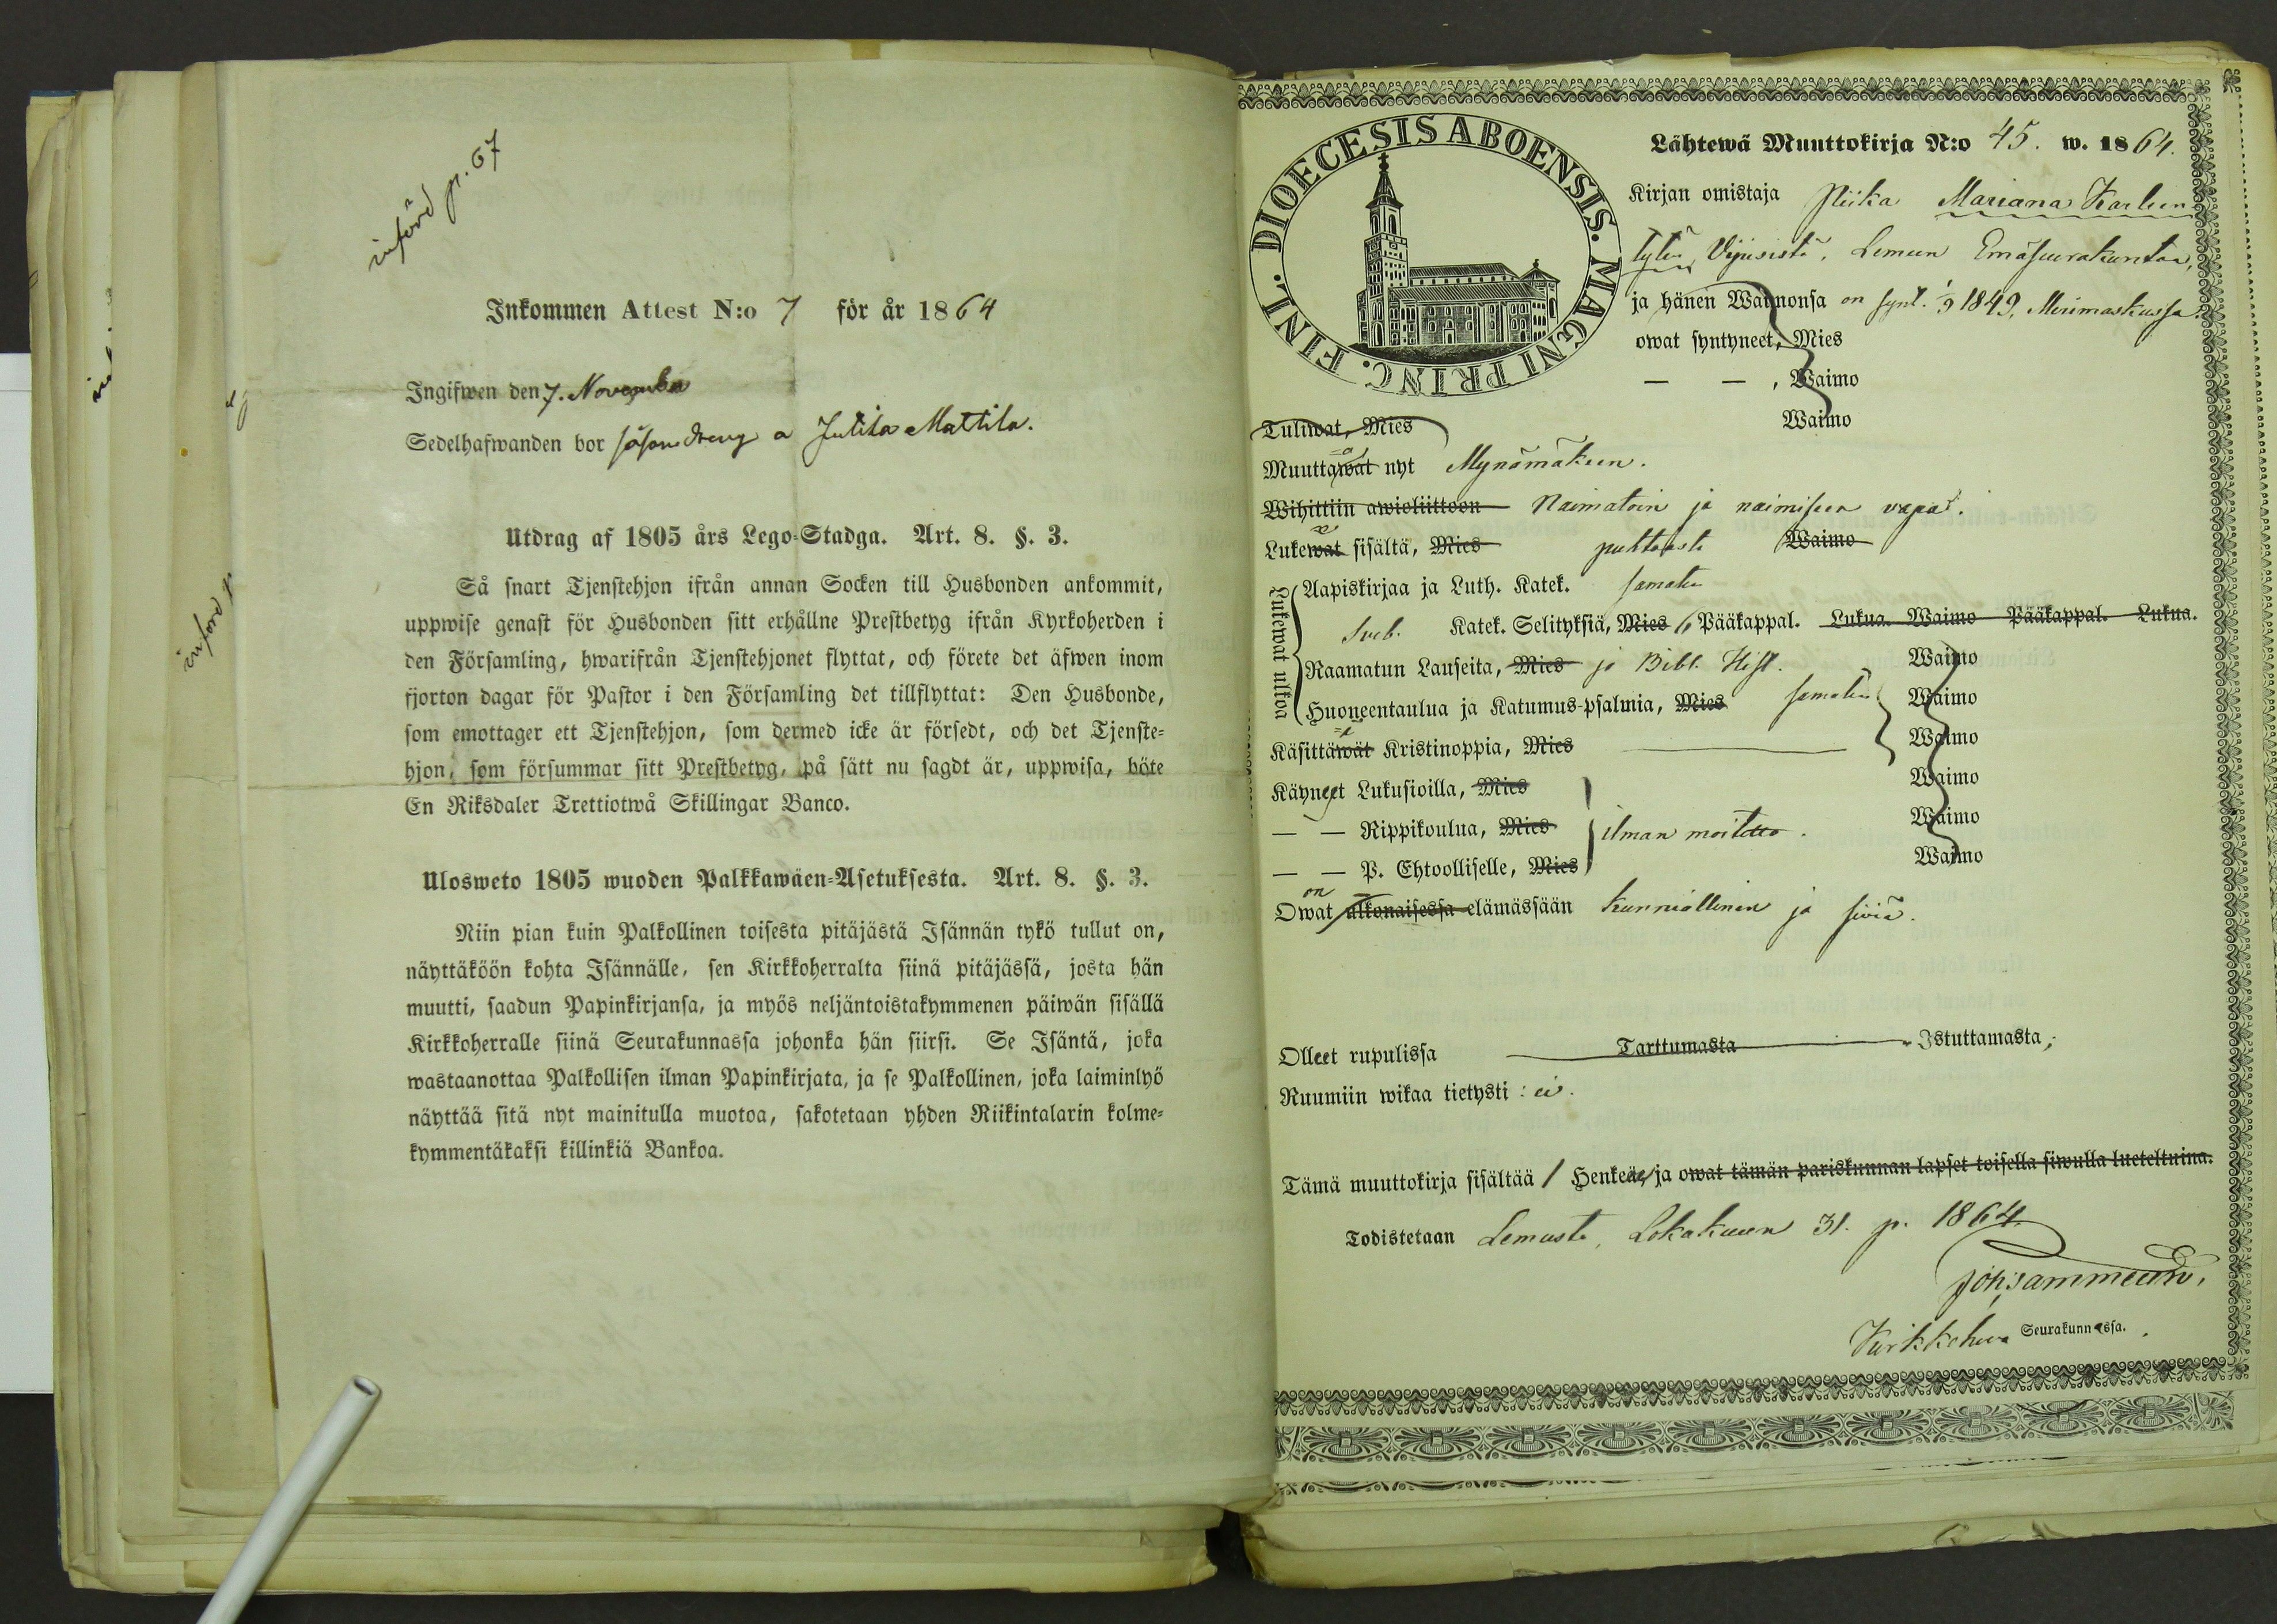 införd p. 67
Inkommen Attest N:o 7 för år 1864
Ingifwen den 7. November
Sedelhafwanden bor såsom dreng a Juttila Mattila.
Utdrag af 1805 års Lego-Stadga. Art. 8. §. 3.
Så snart Tjenstehjon ifrån annan Socken till Husbonden ankommit,
uppwise genast för Husbonden sitt erhållne Prestbetyg ifrån Kyrkoherden i
den Församling, hwarifrån Tjenstehjonet flyttat, och förete det äfwen inom
fjorton dagar för Pastor i den Församling det tillflyttat: Den Husbonde,
som emottager ett Tjenstehjon, som dermed icke är försedt, och det Tjenste-
hjon, som försummar sitt Prestbetyg, på sätt nu sagdt är, uppwisa, böte
En Riksdaler Trettiotwå Skillingar Banco.
Ulosweto 1805 wuoden Palkkawäen-Asetuksesta. Art. 8. §. 3.
Niin pian kuin Palkollinen toisesta pitäjästä Isännän tykö tullut on,
näyttäköön kohta Isännälle, sen Kirkkoherralta siinä pitäjässä, josta hän
muutti, saadun Papinkirjansa, ja myös neljäntoistakymmenen päiwän sisällä
Kirkkoherralle siinä Seurakunnassa johonka hän siirsi. Se Isäntä, joka
wastaanottaa Palkollisen ilman Papinkirjata, ja se Palkollinen, joka laiminlyö
näyttää sitä nyt mainitulla muotoa, sakotetaan yhden Riikintalarin kolme-
kymmentäkaksi killinkiä Bankoa.
införd p.
DIOECESIS ABOENSIS. MAGNI PRINC. FINL.
Lähtewä Muuttokirja N:o 45. w. 1864.
Kirjan omistaja Piika Mariana Karleen
tytär Lemun Emäseurakuntaa,
ja hänen Waimonsa on synt. 1/9 1849, Merimaskussa.
owat syntyneet, Mies
— — , Waimo
Tuliwat, Mies Waimo
Muuttawat nyt Mynämäkeen.
Wihittiin awioliittoon Naimatoin ja naimiseen vapa.
Lukewat sisältä, Mies puttuasti Waimo
Lukewat ulkoa
Aapiskirjaa ja Luth. Katek. samaten
Sveb. Katek. Selityksiä, Mies 6 Pääkappal. Lukua. Waimo Pääkappal. Lukua.
Raamatun Lauseita, Mies ja Bibl. Hist. Waimo
Huoneentaulua ja Katumus-psalmia, Mies samaten Waimo
Käsittäwät Kristinoppia, Mies Waimo
Käyneet Lukusioilla, Mies Waimo
— — Rippikoulua, Mies ilman moitetta. Waimo
— — P. Ehtoolliselle, Mies Waimo
on
Owat ulkonaisessa elämässään kunniallinen ja siviä.
Olleet rupulissa Tarttumasta Istuttamasta,
Ruumiin wikaa tietysti: ei.
Tämä muuttokirja sisältää 1 Henkeä, ja owat tämän pariskunnan lapset toisella siwulla lueteltuina.
Todistetaan Lemusta, Lokakuun 31. p. 1864.
Kirkkoherra Seurakunnassa.